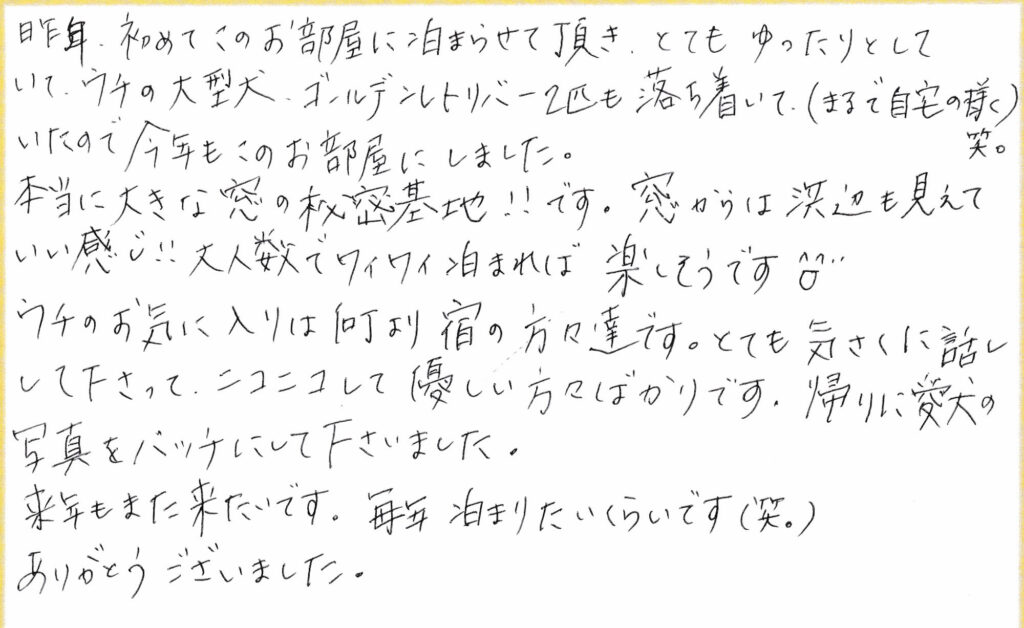 昨年、初めてこのお部屋に泊まらせて頂き、とても ゆったりとして
いて、ウチの大型犬、ゴールデンレトリバー2匹も 落ち着いて、(まるで自宅の様く)
笑。
いたので今年もこのお部屋にしました。
本当に大きな窓の秘密基地!!です。窓からは浜辺も見えて
いい感じ!! 大人数でワィワィ泊まれば 楽しそうです
ウチのお気に入りは何より宿の方々達です。とても 気さくに話し
して下さって、ニコニコして優しい方々ばかりです。帰りに愛犬の
写真をバッチにして下さいました。
来年もまた来たいです。毎年 泊まりたいくらいです(笑。)
ありがとうございました。